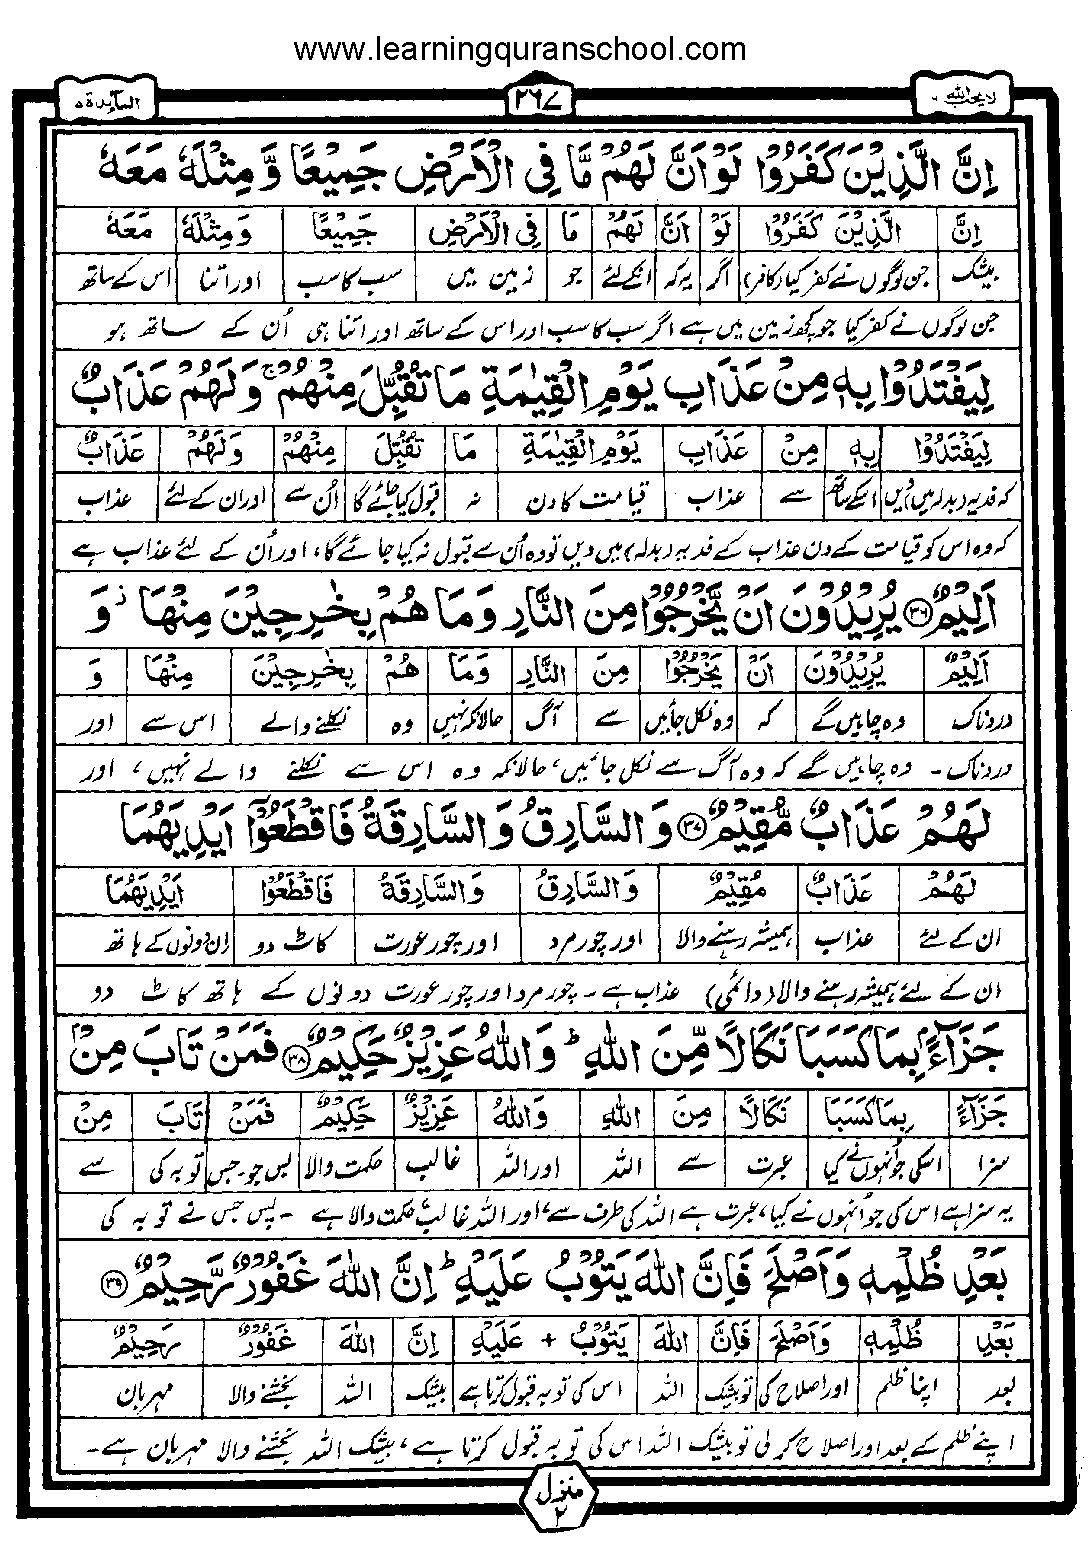 www.learningquranschool.com
لا يحب الله ٦
٢٦٧
المآئدة ٥
اِنَّ الَّذِيْنَ كَفَرُوْا لَوْ اَنَّ لَهُمْ مَّا فِى الْاَرْضِ جَمِيْعًا وَّ مِثْلَهٗ مَعَهٗ
اِنَّ الَّذِيْنَ كَفَرُوْا لَوْ اَنَّ لَهُمْ مَا فِى الْاَرْضِ جَمِيْعًا وَمِثْلَهٗ مَعَهٗ
بیشک جن لوگوں نے کفر کیا (کافر) اگر یہ کہ انکے لئے جو زمین میں سب کا سب اور اتنا اس کے ساتھ
جن لوگوں نے کفر کیا جو کچھ زمین میں ہے اگر سب کا سب اور اس کے ساتھ اور اتنا ہی اُن کے ساتھ ہو
لِيَفْتَدُوْا بِهٖ مِنْ عَذَابِ يَوْمِ الْقِيٰمَةِ مَا تُقُبِّلَ مِنْهُمْ ۚ وَ لَهُمْ عَذَابٌ
لِيَفْتَدُوْا بِهٖ مِنْ عَذَابِ يَوْمِ الْقِيٰمَةِ مَا تُقُبِّلَ مِنْهُمْ وَلَهُمْ عَذَابٌ
کہ فدیہ (بدلہ میں) دیں اسکے ساتھ سے عذاب قیامت کا دن نہ قبول کیا جائے گا اُن سے اور ان کے لئے عذاب
کہ وہ اس کو قیامت کے دن عذاب کے فدیہ (بدلہ) میں دیں تو وہ اُن سے قبول نہ کیا جائے گا، اور اُن کے لئے عذاب ہے
اَلِيْمٌ ﴿٣٦﴾ يُرِيْدُوْنَ اَنْ يَّخْرُجُوْا مِنَ النَّارِ وَ مَا هُمْ بِخٰرِجِيْنَ مِنْهَا ؗ وَ
اَلِيْمٌ يُرِيْدُوْنَ اَنْ يَّخْرُجُوْا مِنَ النَّارِ وَمَا هُمْ بِخٰرِجِيْنَ مِنْهَا وَ
دردناک وہ چاہیں گے کہ وہ نکل جائیں سے آگ حالانکہ نہیں وہ نکلنے والے اس سے اور
دردناک ۔ وہ چاہیں گے کہ وہ آگ سے نکل جائیں، حالانکہ وہ اس سے نکلنے والے نہیں، اور
لَهُمْ عَذَابٌ مُّقِيْمٌ ﴿٣٧﴾ وَ السَّارِقُ وَ السَّارِقَةُ فَاقْطَعُوْۤا اَيْدِيَهُمَا
لَهُمْ عَذَابٌ مُقِيْمٌ وَالسَّارِقُ وَالسَّارِقَةُ فَاقْطَعُوْا اَيْدِيَهُمَا
ان کے لئے عذاب ہمیشہ رہنے والا اور چور مرد اور چور عورت کاٹ دو ان دونوں کے ہاتھ
ان کے لئے ہمیشہ رہنے والا (دائمی) عذاب ہے ۔ چور مرد اور چور عورت دونوں کے ہاتھ کاٹ دو
جَزَآءًۢ بِمَا كَسَبَا نَكَالًا مِّنَ اللّٰهِ ؕ وَ اللّٰهُ عَزِيْزٌ حَكِيْمٌ ﴿٣٨﴾ فَمَنْ تَابَ مِنْۢ
جَزَآءً بِمَا كَسَبَا نَكَالًا مِنَ اللّٰهِ وَاللّٰهُ عَزِيْزٌ حَكِيْمٌ فَمَنْ تَابَ مِنْ
سزا اسکی جو اُنہوں نے کیا عبرت سے اللہ اور اللہ غالب حکمت والا بس جو ۔ جس توبہ کی سے
یہ سزا ہے اس کی جو اُنہوں نے کیا، عبرت ہے اللہ کی طرف سے، اور اللہ غالب حکمت والا ہے ۔ پس جس نے توبہ کی
بَعْدِ ظُلْمِهٖ وَ اَصْلَحَ فَاِنَّ اللّٰهَ يَتُوْبُ عَلَيْهِ ؕ اِنَّ اللّٰهَ غَفُوْرٌ رَّحِيْمٌ ﴿٣٩﴾
بَعْدِ ظُلْمِهٖ وَاَصْلَحَ فَاِنَّ اللّٰهَ يَتُوْبُ + عَلَيْهِ اِنَّ اللّٰهَ غَفُوْرٌ رَحِيْمٌ
بعد اپنا ظلم اور اصلاح کی تو بیشک اللہ اس کی توبہ قبول کرتا ہے بیشک اللہ بخشنے والا مہربان
اپنے ظلم کے بعد اور اصلاح کر لی تو بیشک اللہ اس کی توبہ قبول کرتا ہے، بیشک اللہ بخشنے والا مہربان ہے ۔
منزل ٢